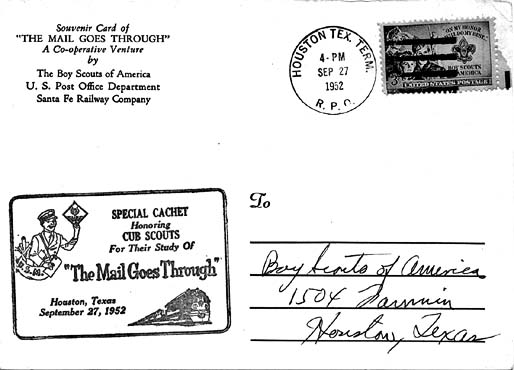 Souvenir Card of
"THE MAIL GOES THROUGH"
A Co-operative Venture
by
The Boy Scouts of America
U. S. Post Office Department
Santa Fe Railway Company
HOUSTON TEX. TERM.
4-PM
SEP 27
1952
R. P. O.
ON MY HONOR
I WILL DO MY BEST
BOY SCOUTS
OF AMERICA
3¢
UNITED STATES POSTAGE
SPECIAL CACHET
Honoring
CUB SCOUTS
For Their Study Of
"The Mail Goes Through"
Houston, Texas
September 27, 1952
To
Boy Scouts of America
1504 Fannin
Houston, Texas